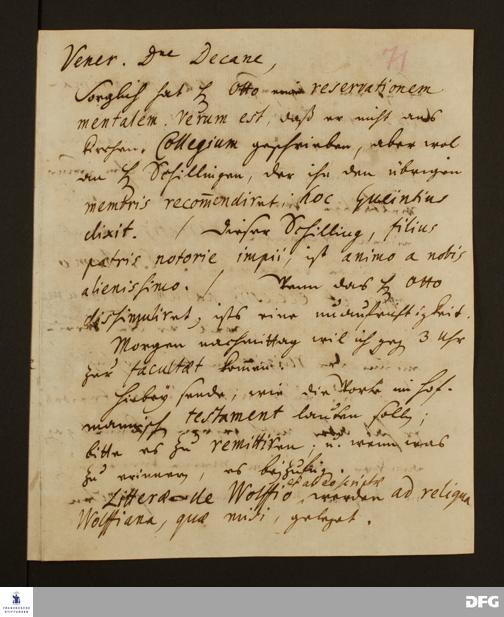 Vener. Dne Decane, 71
Sorglich hat H Otto reservationem
mentalem. Verum est, daß er nicht ans
Kirchen-Collegium geschrieben, aber wol
an H Schillingen, der ihn den übrigen
membris recom̄endiret; hoc Quintius
dixit. / Dieser Schilling, filius
patris notorie impii, ist animo a nobis
alienissimo. / Wenn das H Otto
dissimuliret, ists eine unaufrichtigkeit.
Morgen nachmittag wil ich geg 3 Uhr
zur Facultæt kommen.
Hiebey sende, wie die Worte im Hof-
mannisch Testament lauten solln;
bitte es zu remittiren u. wenn was
zu erinnern, es beyzufüg.
Litteræ de Wolffio et adscriptæ werden ad reliqua
Wolffiana, quæ misi, geleget.
FRANCKESCHE STIFTUNGEN
DFG